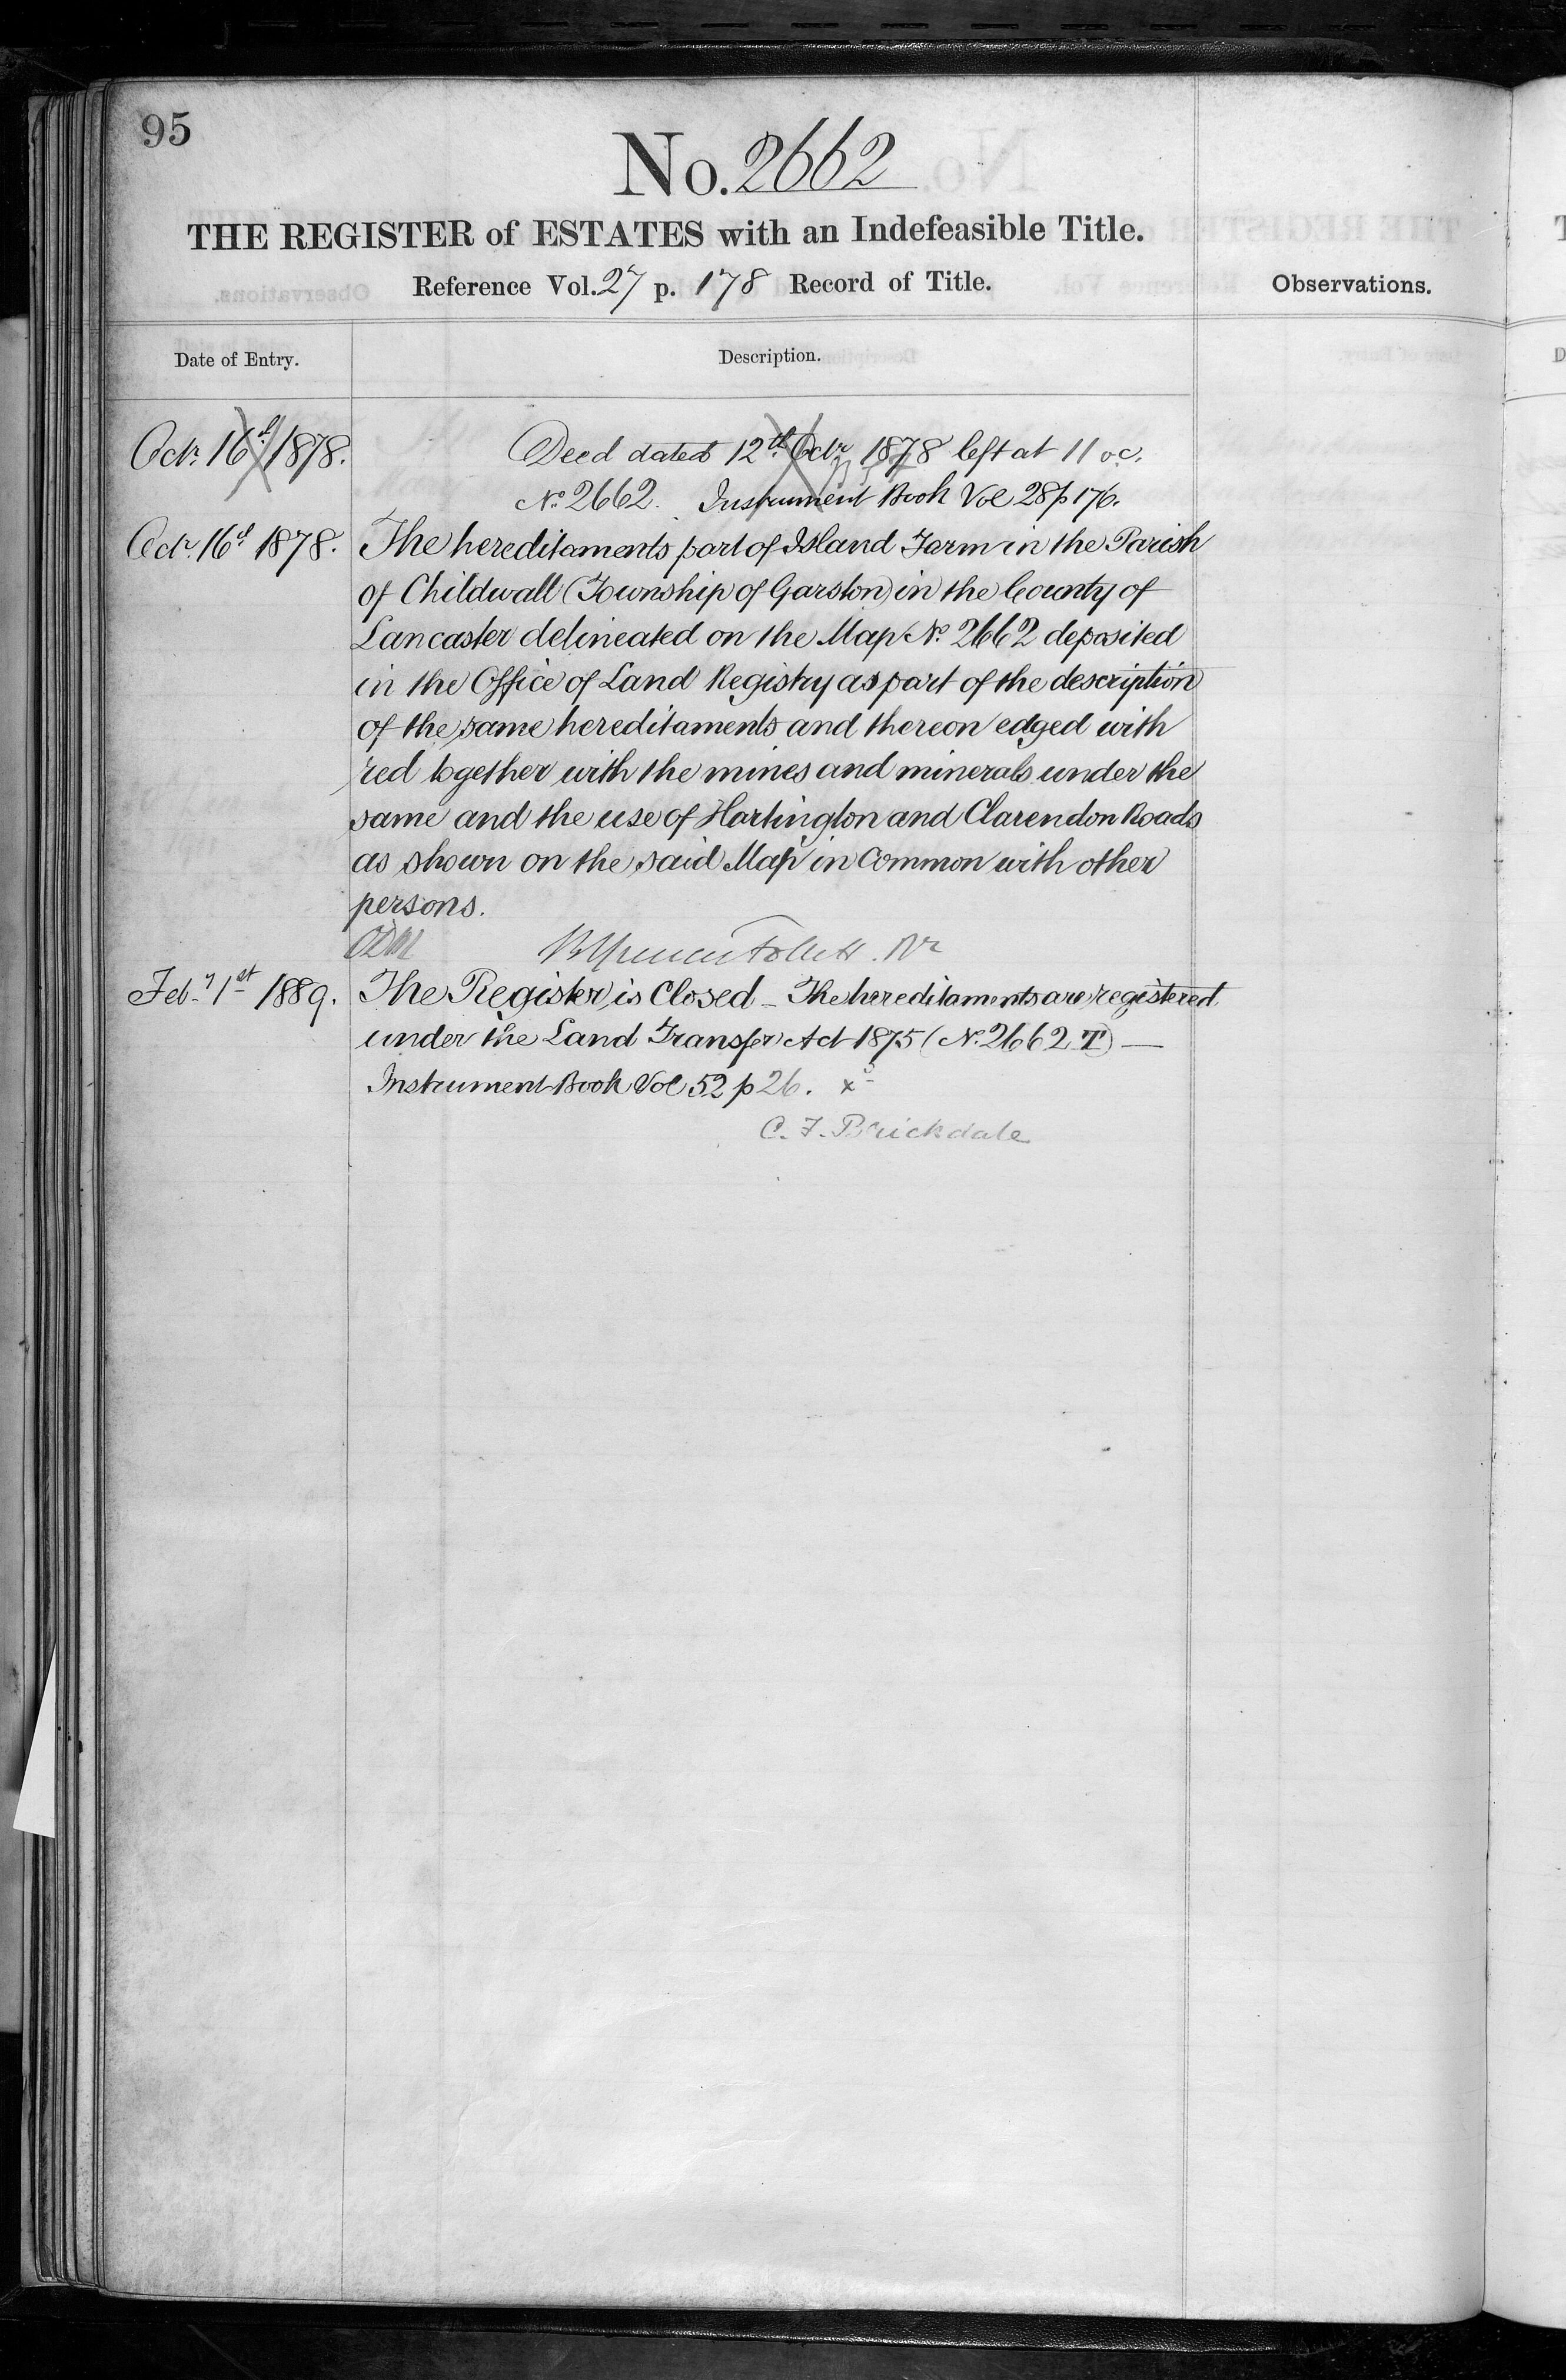 95
No. 2662
THE REGISTER of ESTATES with an Indefeasible Title.
Reference Vol. 27 p. 178 Record of Title.
Observations.
Date of Entry.
Description.
Octr. 16th 1878.
Deed dated 12th Octr 1878 left at 11 oc.
No 2662. Instrument Book Vol 28 p 176.
Octr. 16th 1878. The hereditaments part of Island Farm in the Parish
of Childwall (Township of Garston) in the County of
Lancaster delineated on the Map No. 2662 deposited
in the Office of Land Registry as part of the description
of the same hereditaments and thereon edged with
red together with the mines and minerals under the
same and the use of Hartington and Clarendon Roads
as shown on the said Map in common with other
persons.
Follett
Feby 1st 1889. The Register is Closed _ The hereditaments are registered
under the Land Transfer Act 1875 (No. 2662 T) —
Instrument Book Vol 52 p 26. x
C. F. Brickdale